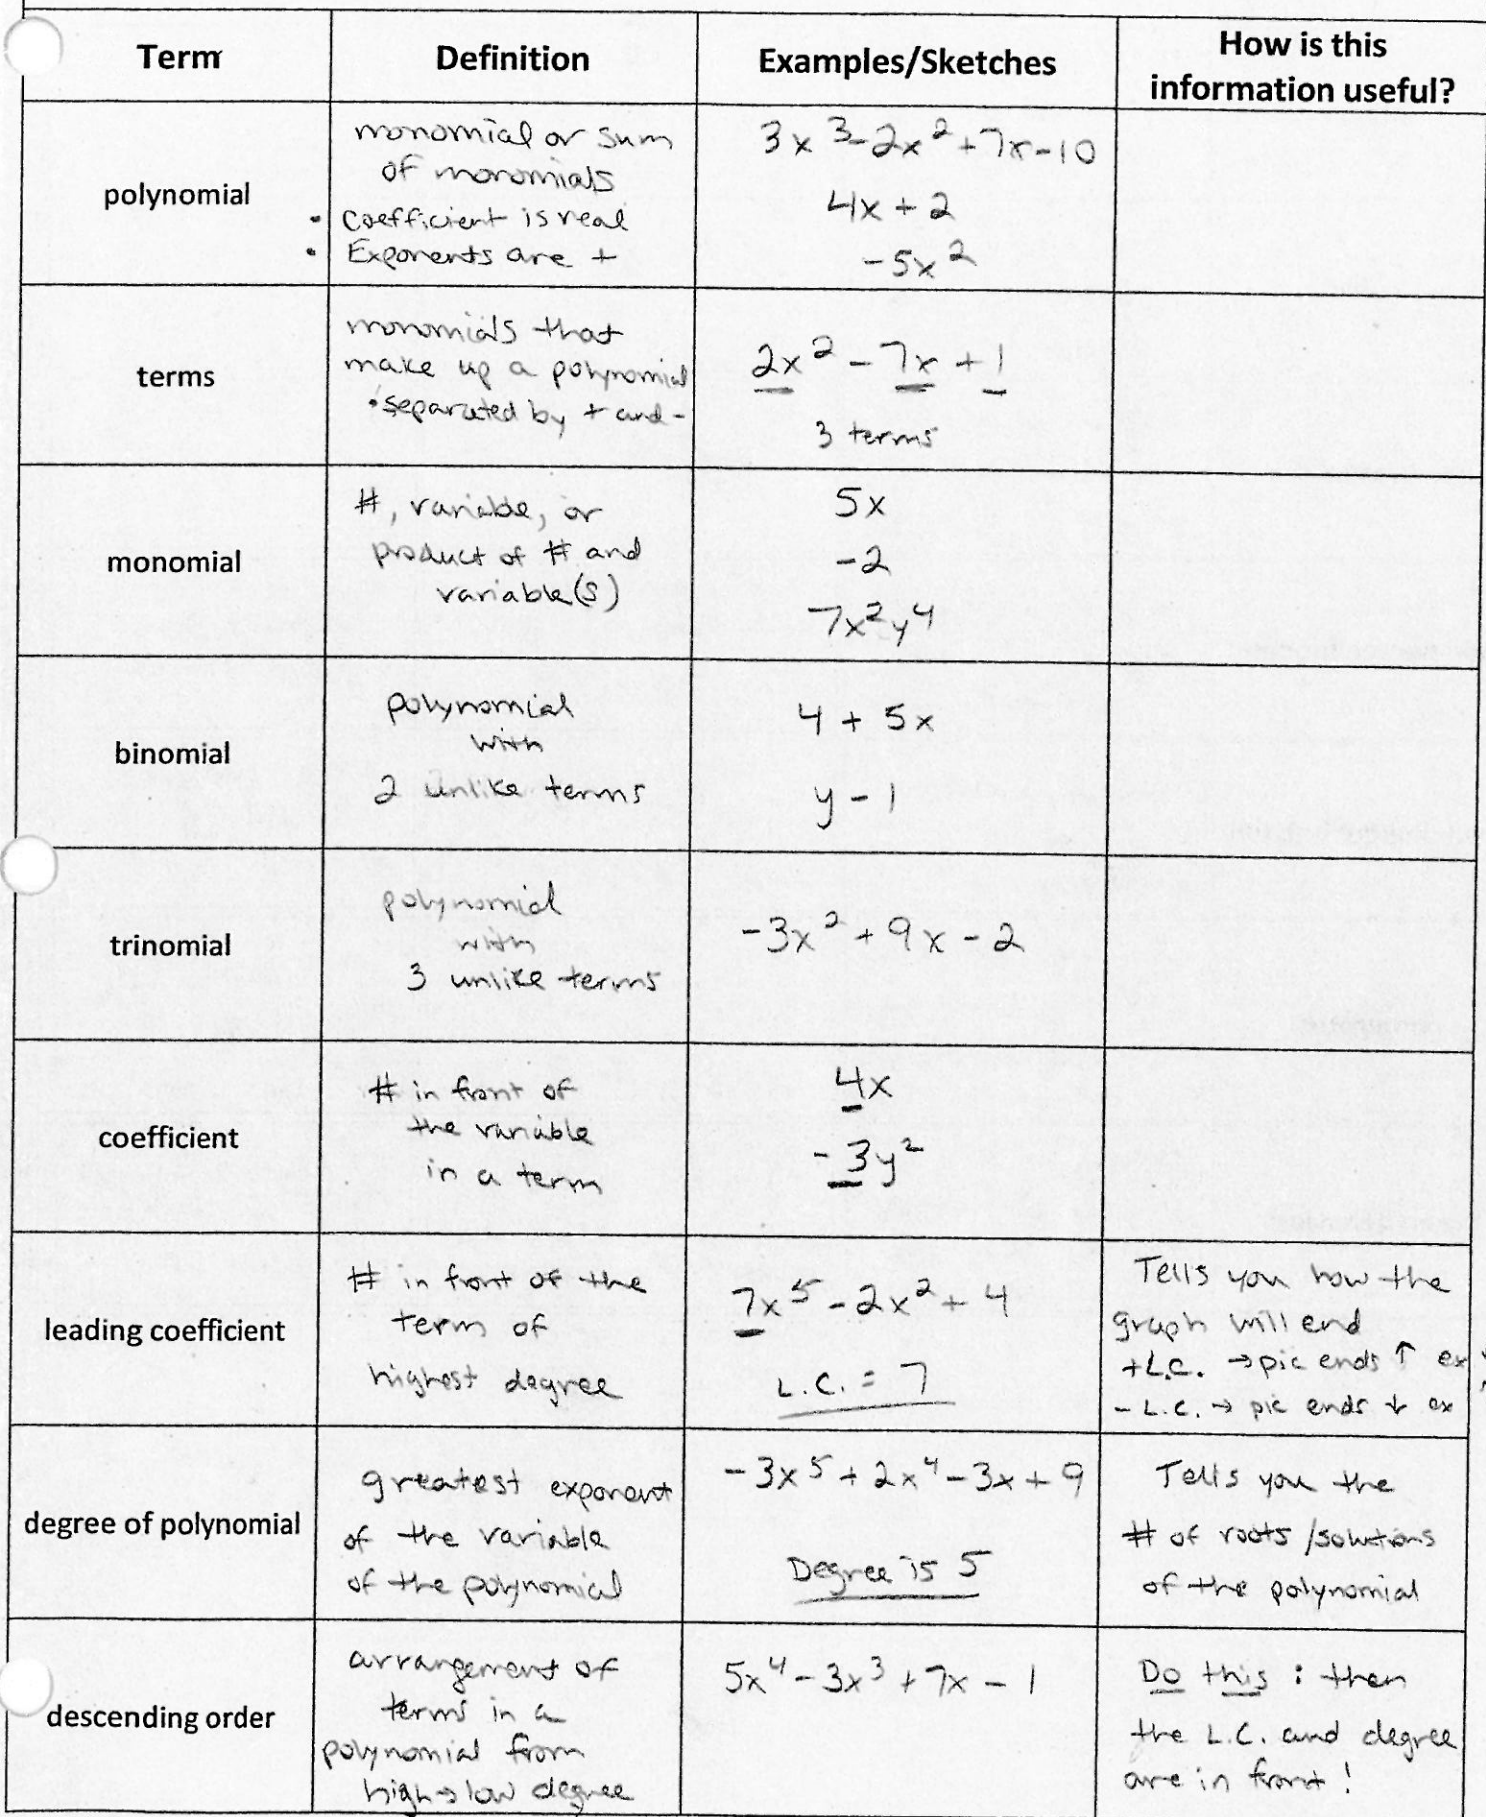 Term
Definition
Examples/Sketches
How is this
information useful?
polynomial
monomial or sum
of monomials
• Coefficient is real
• Exponents are +
3x³-2x²+7x-10
4x + 2
-5x²
terms
monomials that
make up a polynomial
• separated by + and -
2x² - 7x + 1
3 terms
monomial
#, variable, or
product of # and
variable(s)
5x
-2
7x²y⁴
binomial
polynomial
with
2 unlike terms
4 + 5x
y - 1
trinomial
polynomial
with
3 unlike terms
-3x² + 9x - 2
coefficient
# in front of
the variable
in a term
4x
-3y²
leading coefficient
# in front of the
term of
highest degree
7x⁵ - 2x² + 4
L.C. = 7
Tells you how the
graph will end
+L.C. → pic ends ↑ ex
- L.C. → pic ends ↓ ex
degree of polynomial
greatest exponent
of the variable
of the polynomial
-3x⁵ + 2x⁴ - 3x + 9
Degree is 5
Tells you the
# of roots/solutions
of the polynomial
descending order
arrangement of
terms in a
polynomial from
high→low degree
5x⁴ - 3x³ + 7x - 1
Do this : then
the L.C. and degree
are in front!